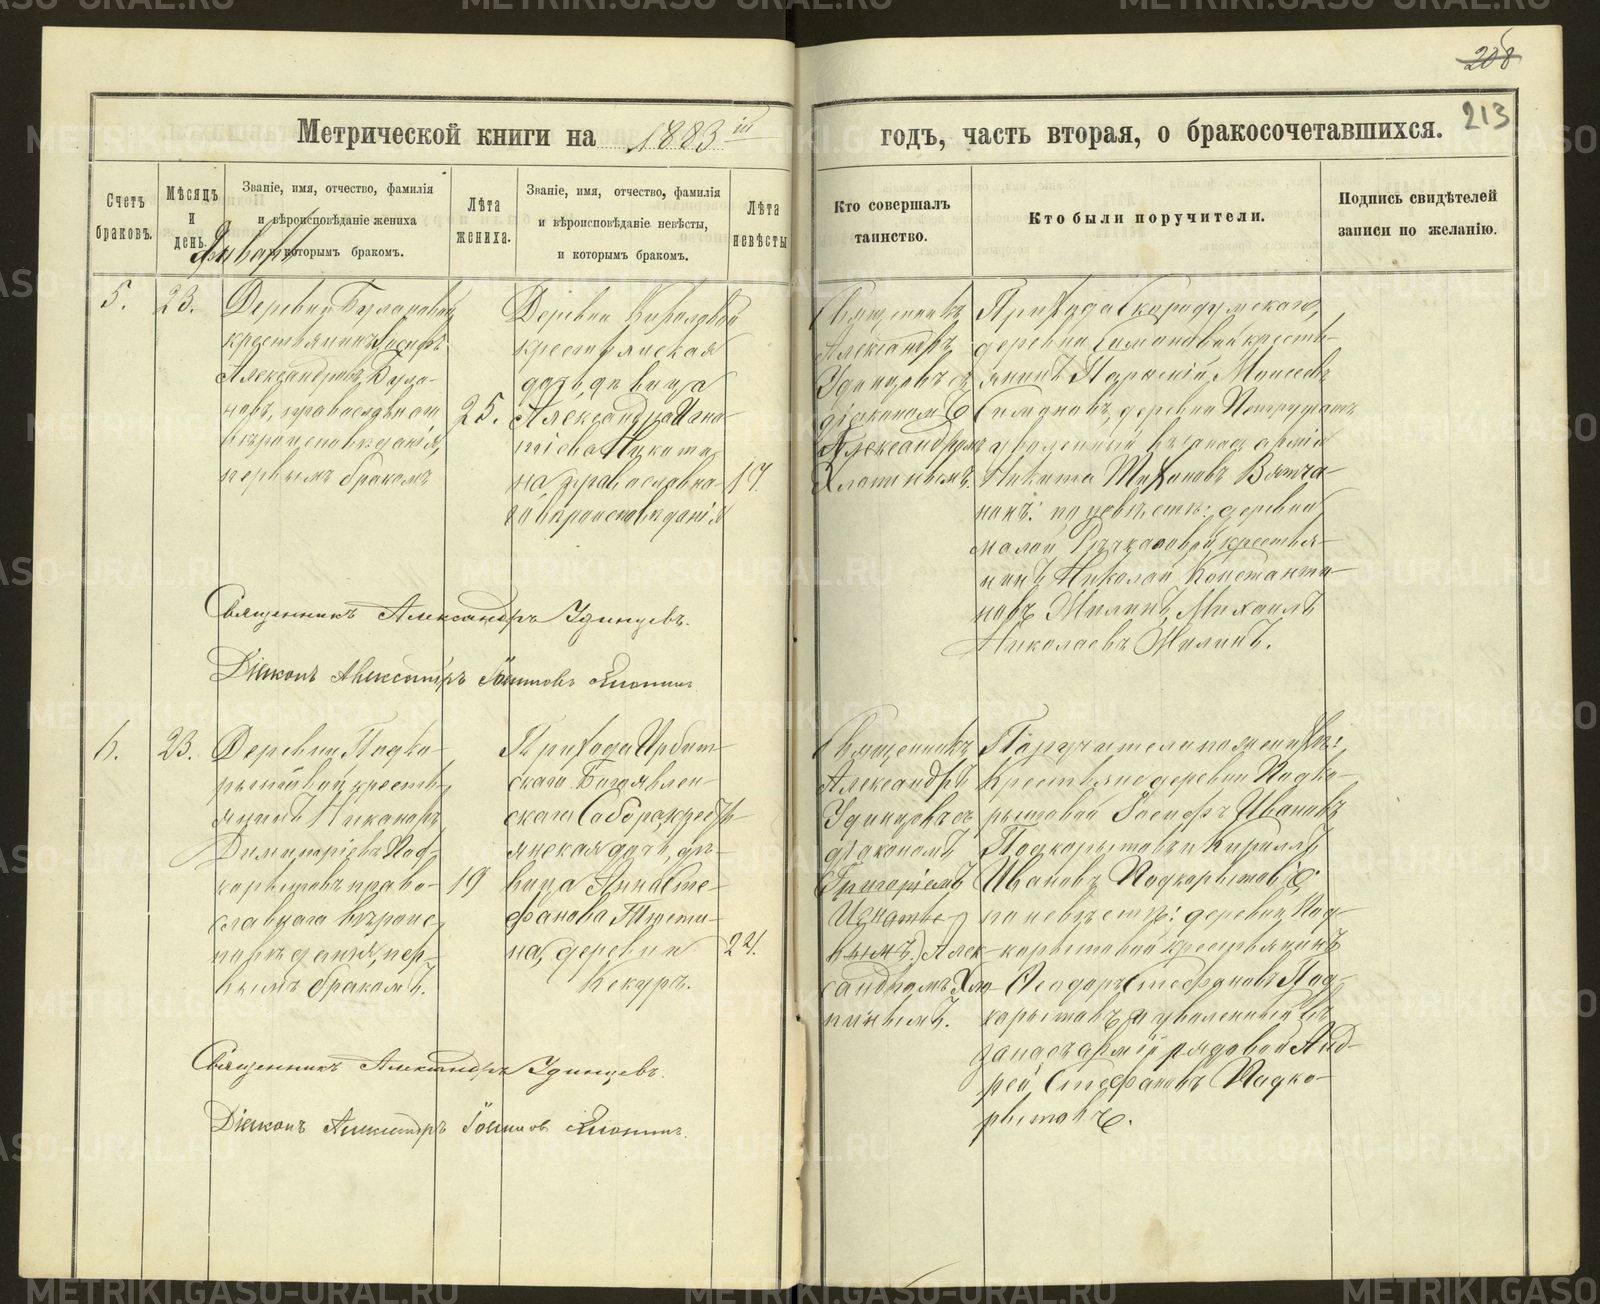 208
213
Метрической книги на 1883 й
годъ, часть вторая, о бракосочетавшихся.
Счетъ браковъ.
Мѣсяцъ и день.
Званіе, имя, отчество, фамилія и вѣроисповѣданіе жениха и которымъ бракомъ.
Лѣта жениха.
Званіе, имя, отчество, фамилія и вѣроисповѣданіе невѣсты, и которымъ бракомъ.
Лѣта невѣсты
Кто совершалъ таинство.
Кто были поручители.
Подпись свидѣтелей записи по желанію.
Январь
5.
23.
Деревни Булановой
крестьянинъ Іосифъ
Александровъ Була-
новъ, православнаго
вѣроисповѣданія,
первымъ бракомъ
25.
Деревни Кириловой
крестьянская
дочь дѣвица
Александра Игна-
тіева Никити-
на, православна-
го вѣроисповѣданія
17.
Священникъ
Александръ
Удинцовъ съ
діакономъ
Александромъ
Хлопинымъ.
Прихода Скородумскаго,
деревни Симановой крестья-
янинъ Парѳеній Моисеевъ
Симановъ, деревни
уволенный въ запасъ арміи
Никита Тихановъ Вятча-
нинъ: по невѣстѣ: деревни
малой Речкаловой крестья-
нинъ Николай Константи-
новъ Жилинъ, Михаилъ
Николаевъ Жилинъ.
Священникъ Александръ Удинцевъ.
Діаконъ Александръ
6.
23.
Деревни Подко-
рытовой кресть-
янинъ Никаноръ
Димитріевъ Под-
корытовъ право-
славнаго вѣроис-
повѣданія, пер-
вымъ бракомъ.
19
Прихода Ирбит-
скаго Богоявлен-
скаго Собора, кресть-
янская дочь, дѣ-
вица Анна Сте-
фанова Тюти-
на, деревни
Кекуръ.
22.
Священникъ
Александръ
Удинцовъ съ
діакономъ
Григоріемъ
Игнатье-
вымъ) Алек-
сандромъ Хло-
пинымъ.
Поручители по женихѣ:
Крестьяне деревни Подко-
рытовой Іосифъ Ивановъ
Подкорытовъ и Кириллъ
Ивановъ Подкорытовъ;
по невѣстѣ: деревни Под-
корытовой крестьянинъ
Ѳеодоръ Стефановъ Под-
корытовъ и уволенный въ
запасъ арміи рядовой Анд-
рей Стефановъ Подко-
рытовъ.
Священникъ Александръ Удинцевъ.
Діаконъ Александръ
METRIKI.GASO-URAL.RU